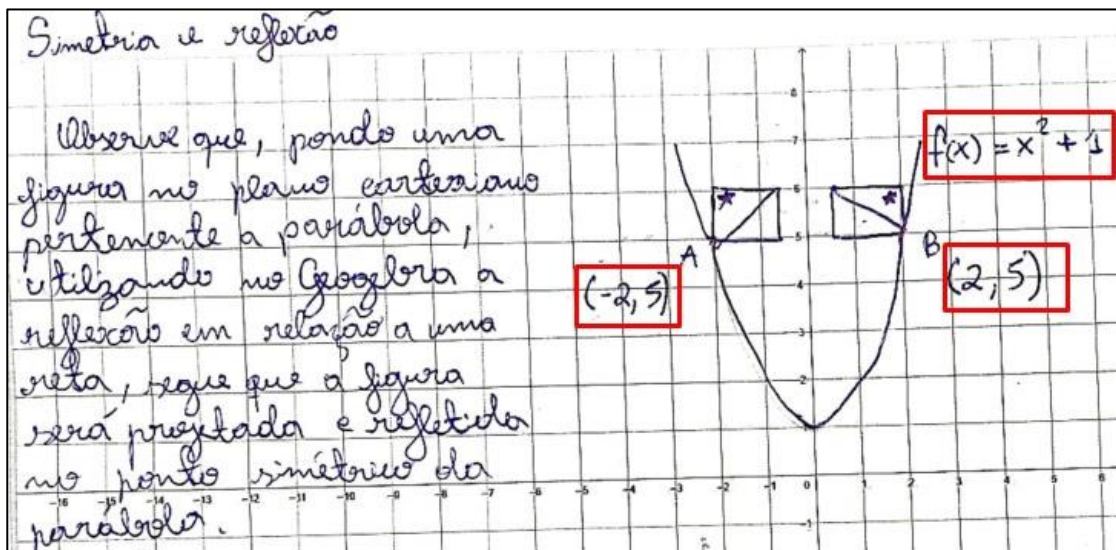 Simetria e reflexão
Observe que, pondo uma
figura no plano cartesiano
pertencente a parábola,
utilizando no Geogebra a
reflexão em relação a uma
reta, segue que a figura
será projetada e refletida
no ponto simétrico da
parábola.
f(x) = x² + 1
A
B
(-2, 5)
(2, 5)
8
7
6
5
4
3
2
-16 -15 -14 -13 -12 -11 -10 -9 -8 -7 -6 -5 -4 -3 -2 -1 0 1 2 3 4 5 6
-1